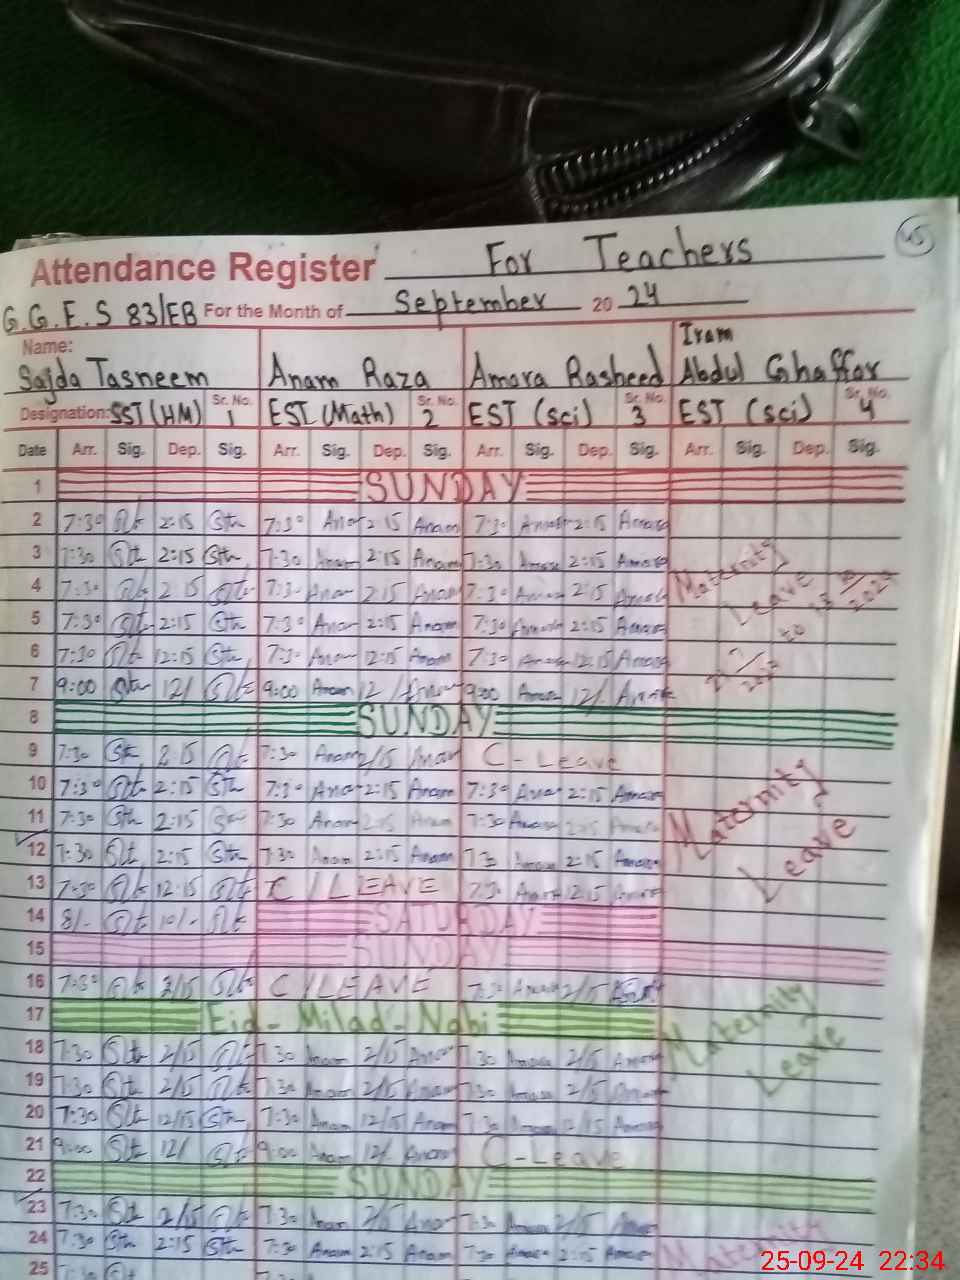 45
Attendance Register For Teachers
G.G.E.S 83/EB For the Month of September 2024
Name: Sajda Tasneem Anam Raza Amara Rasheed Iram Abdul Ghaffar
Designation: SST (HM) Sr. No. 1 EST (Math) Sr. No. 2 EST (sci) Sr. No. 3 EST (sci) Sr. No. 4
Date Arr. Sig. Dep. Sig. Arr. Sig. Dep. Sig. Arr. Sig. Dep. Sig. Arr. Sig. Dep. Sig.
1 SUNDAY
2 7:30 2:15 7:30 Anam 2:15 Anam 7:30 Amara 2:15 Amara
3 7:30 2:15 7:30 Anam 2:15 Anam 7:30 Amara 2:15 Amara
4 7:30 2:15 7:30 Anam 2:15 Anam 7:30 Amara 2:15 Amara Maternity Leave
5 7:30 2:15 7:30 Anam 2:15 Anam 7:30 Amara 2:15 Amara
6 7:30 12:15 7:30 Anam 12:15 Anam 7:30 Amara 12:15 Amara
7 9:00 12/ 9:00 Anam 12/ Anam 9:00 Amara 12/. Amara
8 SUNDAY
9 7:30 2:15 7:30 Anam 2/15 Anam C-Leave
10 7:30 2:15 7:30 Anam 2:15 Anam 7:30 Amara 2:15 Amara
11 7:30 2:15 7:30 Anam 2:15 Anam 7:30 Amara 2:15 Amara Maternity Leave
12 7:30 2:15 7:30 Anam 2:15 Anam 7:30 Amara 2:15 Amara
13 7:30 12:15 C/LEAVE 7:30 Amara 12:15 Amara
14 8/- 10/- SATURDAY
15 SUNDAY
16 7:30 2/15 C/LEAVE 7:30 Amara 2/15
17 Eid-Milad-Nabi
18 7:30 2/15 7:30 Anam 2/15 Anam 7:30 Amara 2/15 Amara Maternity Leave
19 7:30 2/15 7:30 Anam 2/15 Anam 7:30 Amara 2/15 Amara
20 7:30 12/15 7:30 Anam 12/15 Anam 7:30 Amara 12/15 Amara
21 9:00 12/ 9:00 Anam 12/. Anam C-Leave
22 SUNDAY
23 7:30 2/15 7:30 Anam 2/15 Anam 7:30 Amara 2/15 Amara
24 7:30 2:15 7:30 Anam 2:15 Anam 7:30 Amara 2:15 Amara Maternity
25
25-09-24 22:34